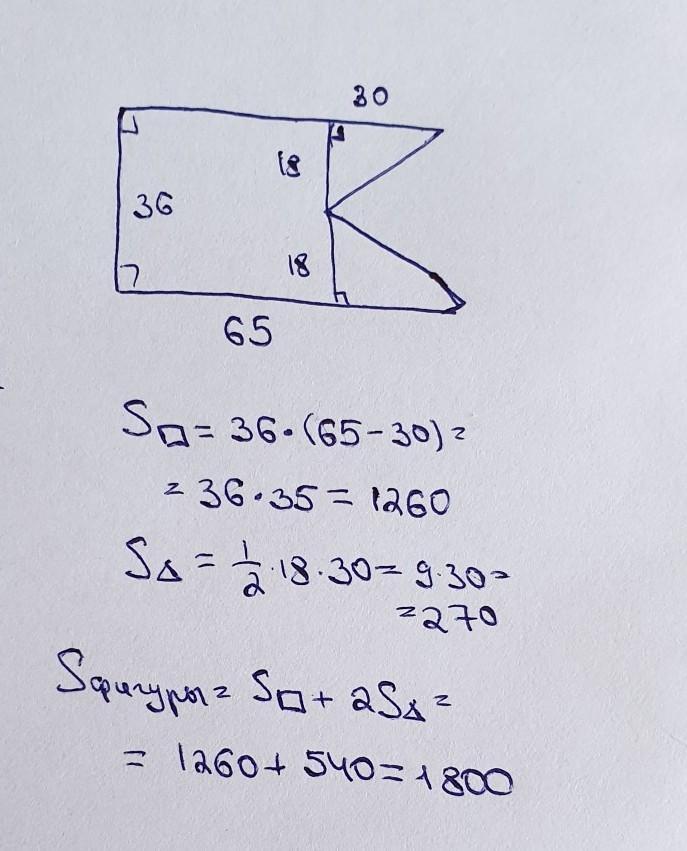 30
18
36
18
65
S□ = 36·(65-30) =
= 36·35 = 1260
S△ = 1/2·18·30 = 9·30 =
= 270
Sфигуры = S□ + 2S△ =
= 1260 + 540 = 1800